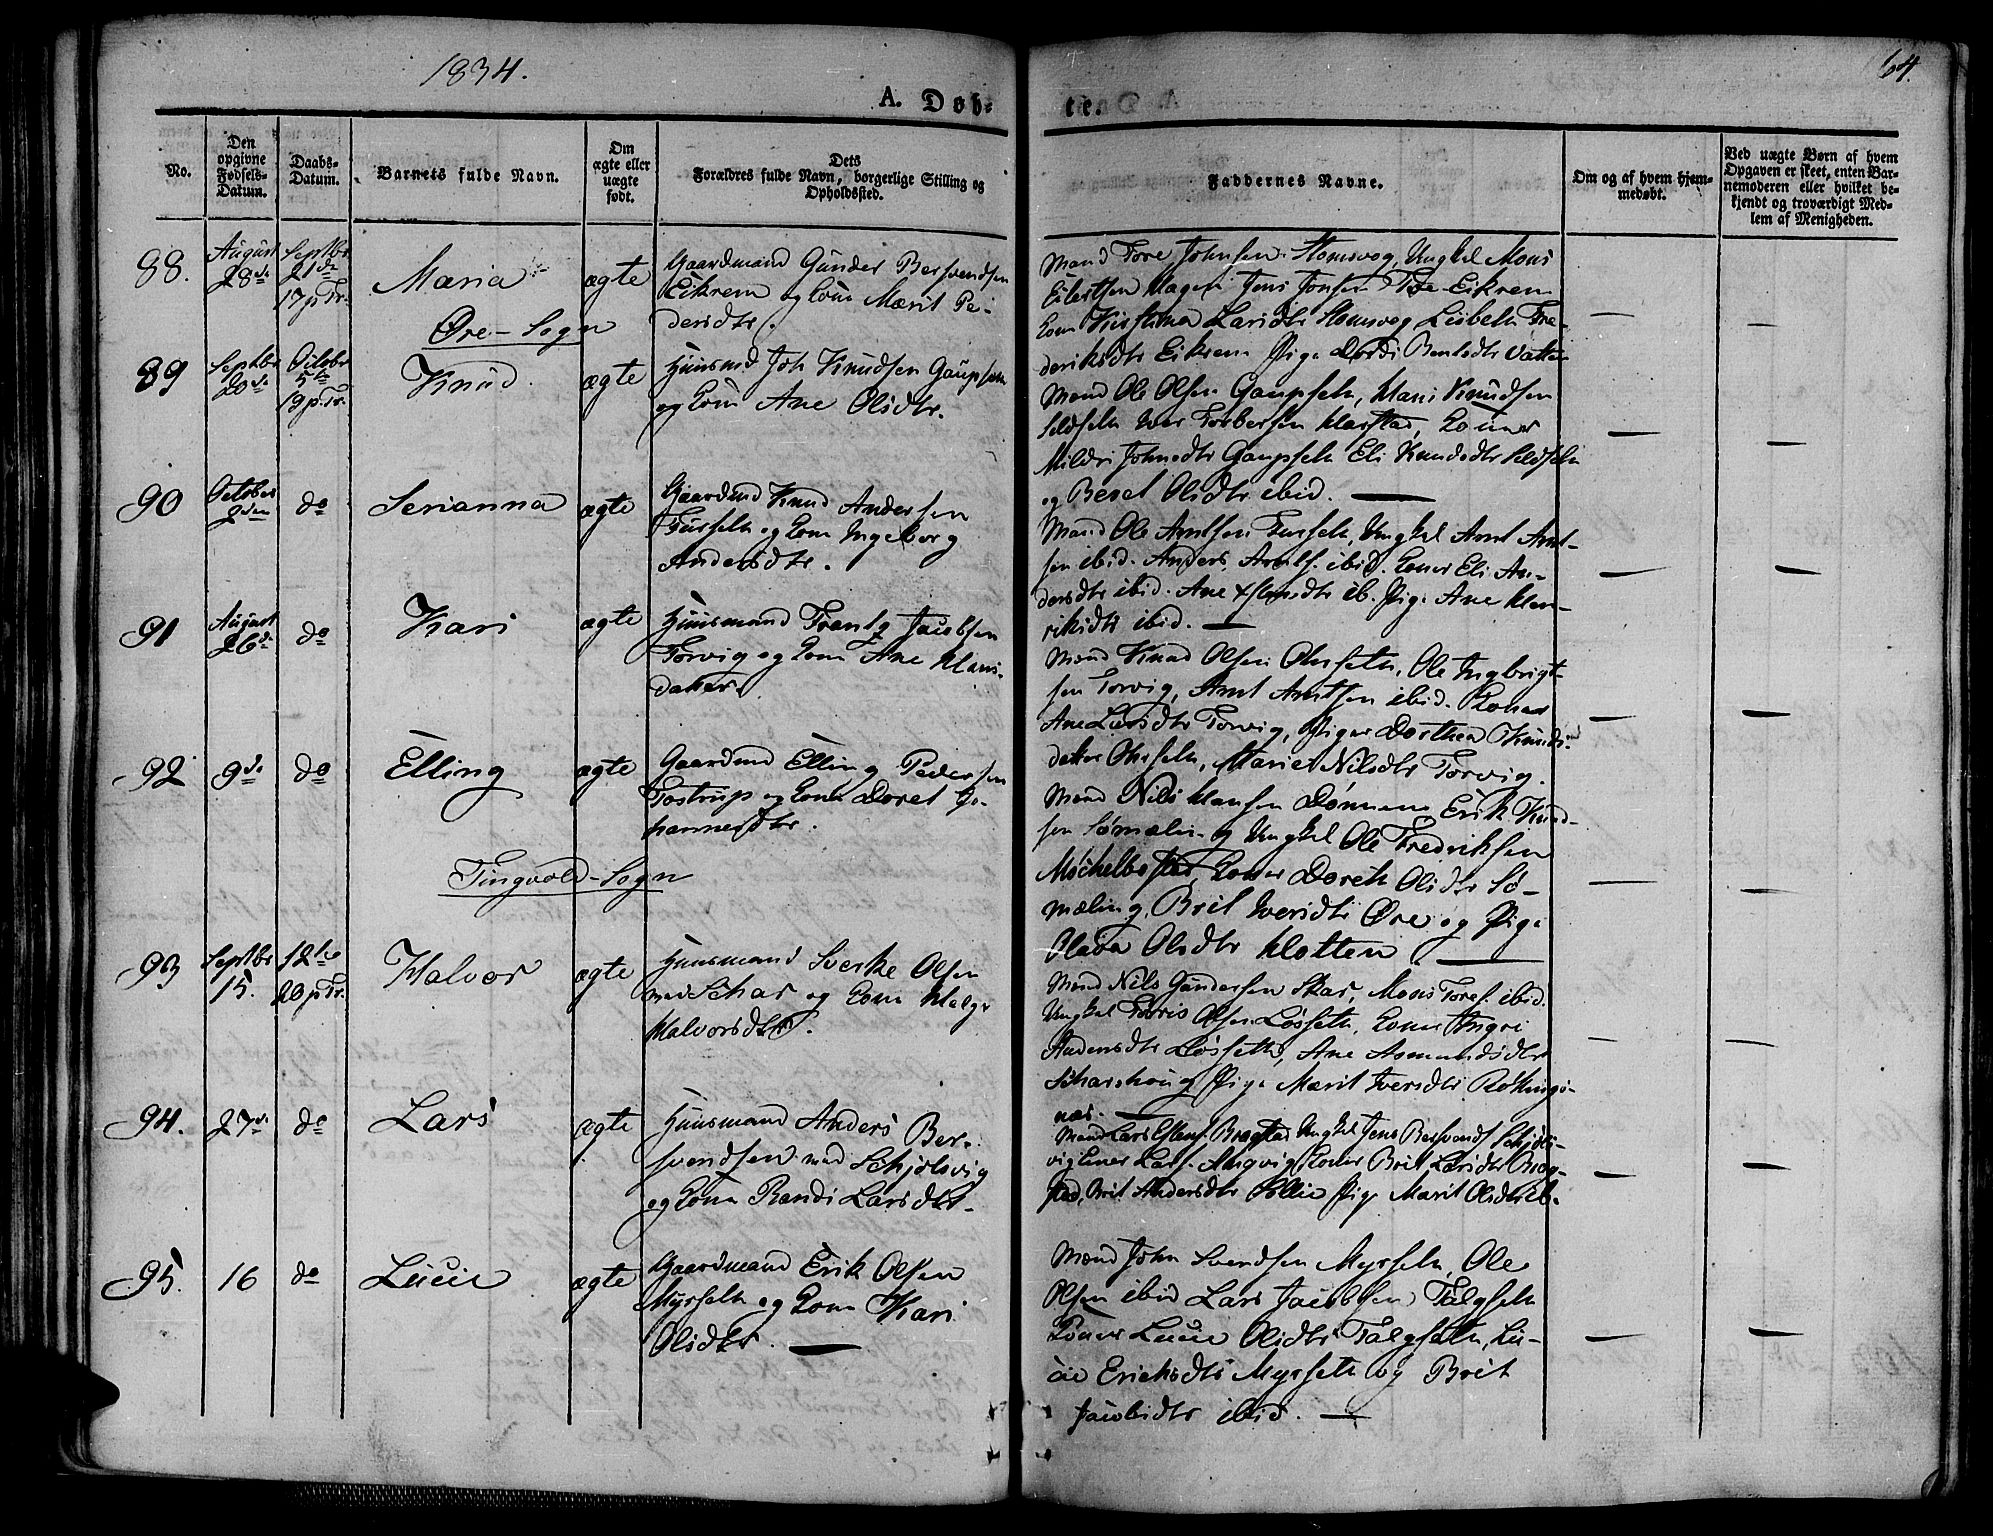 1834.
64.
A. Døb-
te.
No.
Den opgivne Fødsels-Datum.
Daabs-Datum.
Barnets fulde Navn.
Om ægte eller uægte født.
Dets Forældres fulde Navn, borgerlige Stilling og Opholdssted.
Faddernes Navne.
Om og af hvem hjemmedøbt.
Ved uægte Børn af hvem Opgaven er skeet, enten Barnemoderen eller hvilket bekjendt og troværdigt Medlem af Menigheden.
88.
August 28de
Septbr 21de 17 p. Tr.
Maria
ægte
Gaardmand Gunder Bersvendsen
Eikrem og Kone Marit Pe-
dersdtr.
Mænd Tore Johnsen Stomsvog, Ungkl Mons
Eilertsen Jens Jonsen Eikrem
Kone Kirstina Larsdtr Stomsvog Lisbeth Fre-
deriksdtr Eikrem Pige Dordi Bentsdtr
Øre-Sogn
89
Septbr 20de
Octobr 5te 19 p. Tr.
Knud
ægte
Huusmd Joh Knudsen Gaupseth
og Kone Ane Olsdtr.
Mænd Ole Olsen Gaupseth, Hans Knudsen
Iver Torbersen Harstad, Koner
Mildri Johnsdtr Gaupseth Eli Knudsdtr
og Beret Olsdtr ibid.
90
October 2den
do
Serianna
ægte
Gaardmd Knud Andersen
Furseth og Kone Ingeborg
Andersdtr.
Mænd Ole Arntsen Furseth, Ungkl Arnt Arnt-
sen ibid. Anders Arntsf. ibid. Koner Eli An-
dersdtr ibid. Ane ib. Pige Ane Hen-
riksdtr ibid.
91
August 26de
do
Kari
ægte
Huusmand Frantz Jacobsen
Torvig og Kone Ane Hans-
datter.
Mænd Knud Olsen Ohrseth, Ole Ingbrigt-
sen Torvig, Arnt Arntsen ibid. Koner
Ane Larsdtr Torvig, Piger Dorthea Knuds-
datter Ohrseth, Marie Nilsdtr Torvig.
92
9de
do
Elling
ægte
Gaardmd Elling Pedersen
Tostrup og Kone Doret Jo-
hannesdtr.
Mænd Nils Hansen Dønnem Erik Knud-
sen Sømæling Ungkl Ole Fredriksen
Koner Doreth Olsdtr Sø-
mæling, Brit Iversdtr Øre og Pige
Olava Olsdtr Holten
Tingvold-Sogn
93
Septbr 15.
12te 20 p Tr.
Halvor
ægte
Huusmand Sverke Olsen
med Schar og Kone Helge
Halvorsdtr.
Mænd Nils Gundersen Skar, Mons Toresf. ibid.
Ungkl Torris Olsen Løsseth, Koner Ingri
Andersdtr Løsseth, Ane Asmundsdtr
Scharshoug Pige Marit Iversdtr Rækings-
næs.
94.
27de
do
Lars
ægte
Huusmand Anders Ber-
svendsen med Schjølsvig
og Kone Randi Larsdtr.
Mænd Lars Estens. Bragstad Ungkl Jens Bersvends. Schjøls-
vig Einer Lars. Angvig Koner Brit Larsdtr Brag-
stad, Brit Andersdtr Pige Marit Olsdtr ib.
95.
16
do
Lucie
ægte
Gaardmand Erik Olsen
Myrseth og Kone Kari
Olsdtr.
Mænd John Svendsen Myrseth, Ole
Olsen ibid Lars Jacobsen Talgseth
Koner Lucie Olsdtr Talgseth, Lu-
cie Ericksdtr Myrseth og Brit
Jacobsdtr ibid.